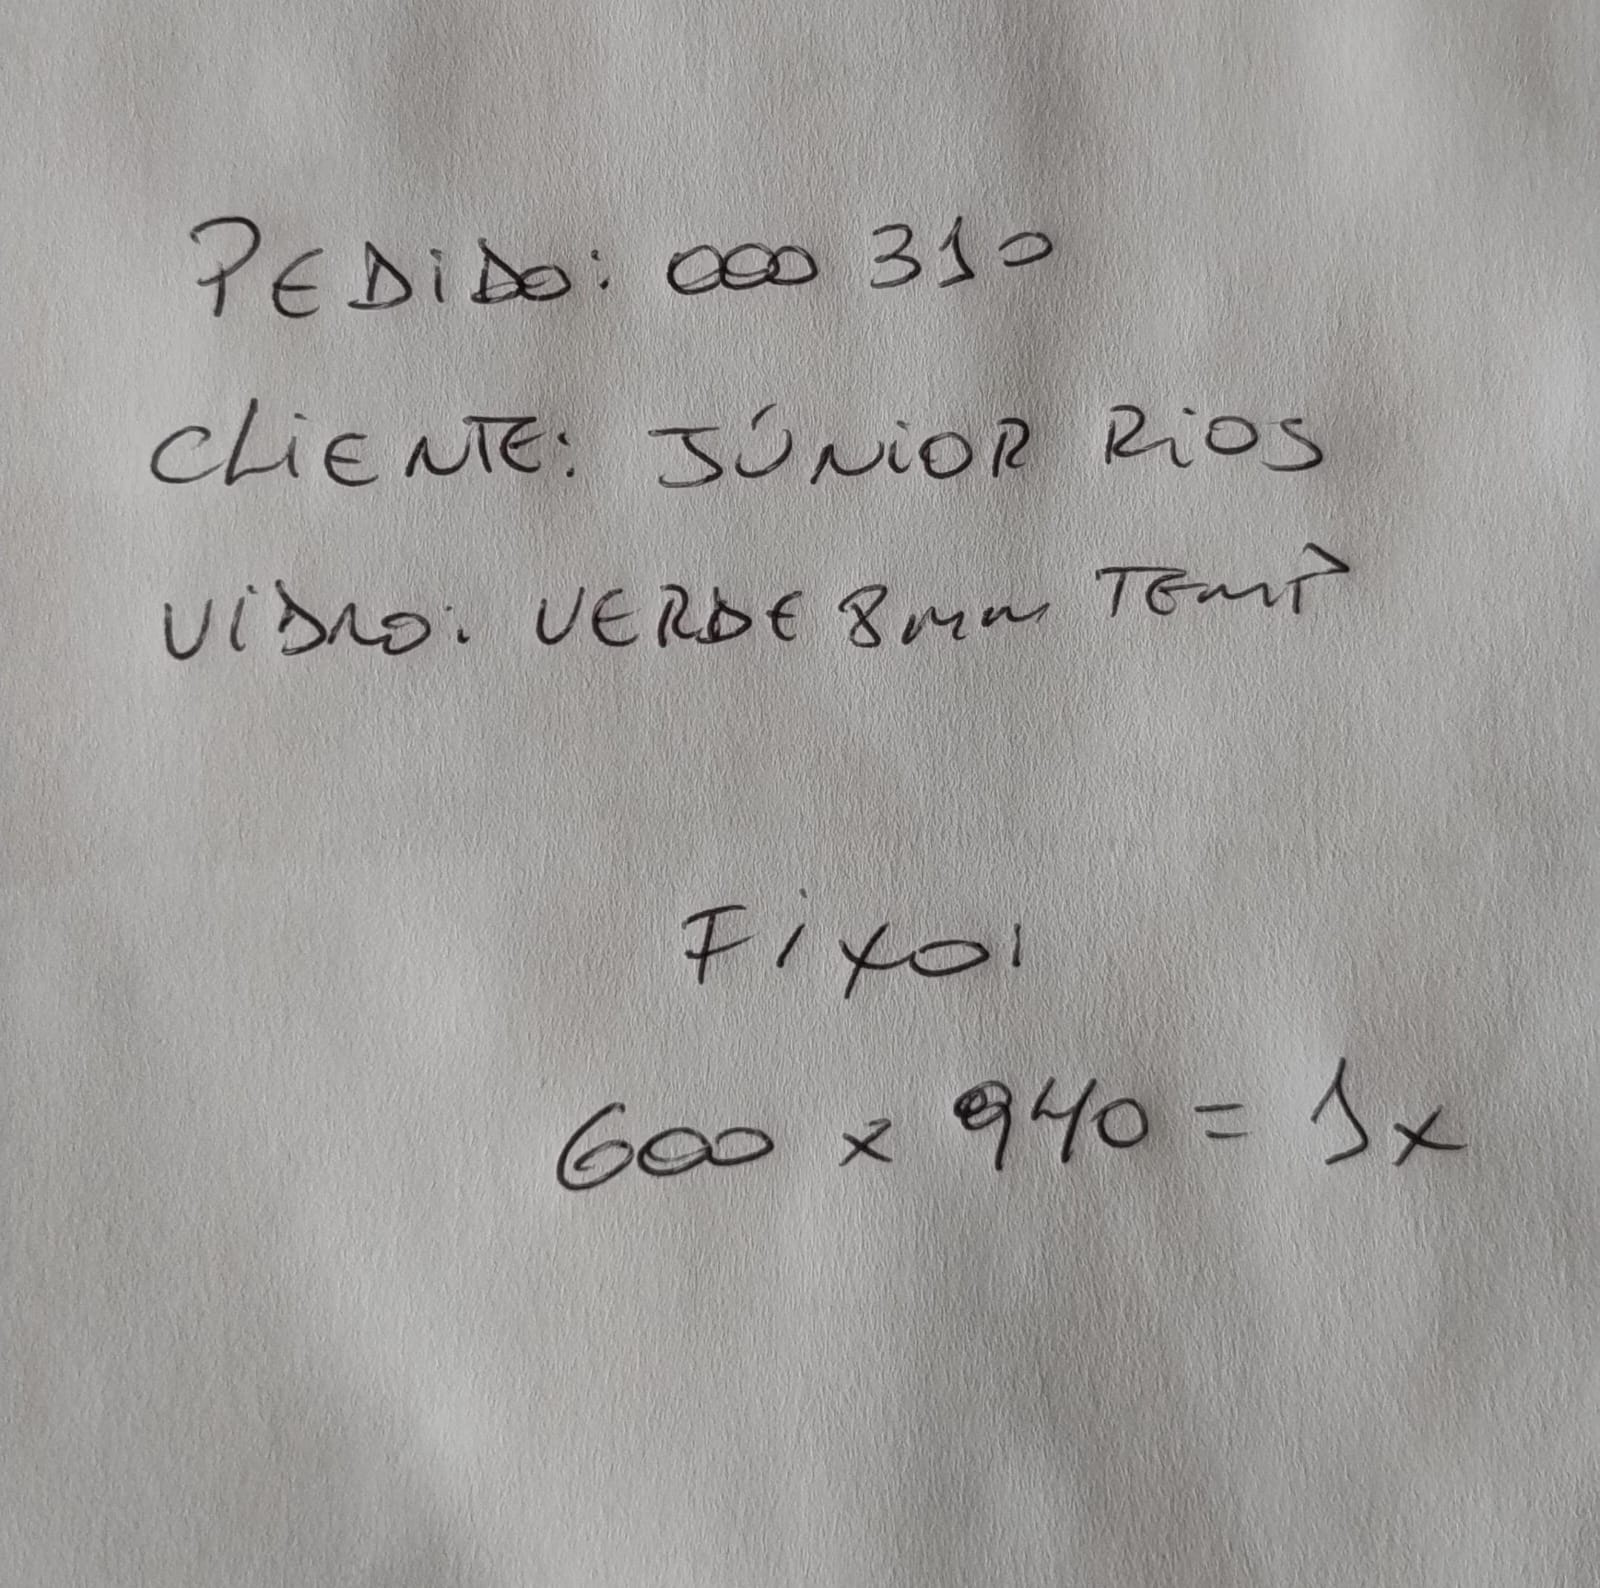 PEDIDO: 000 310
CLIENTE: JÚNIOR RIOS
VIDRO: VERDE 8mm TEMP
FIXO
600 x 940 = 1x